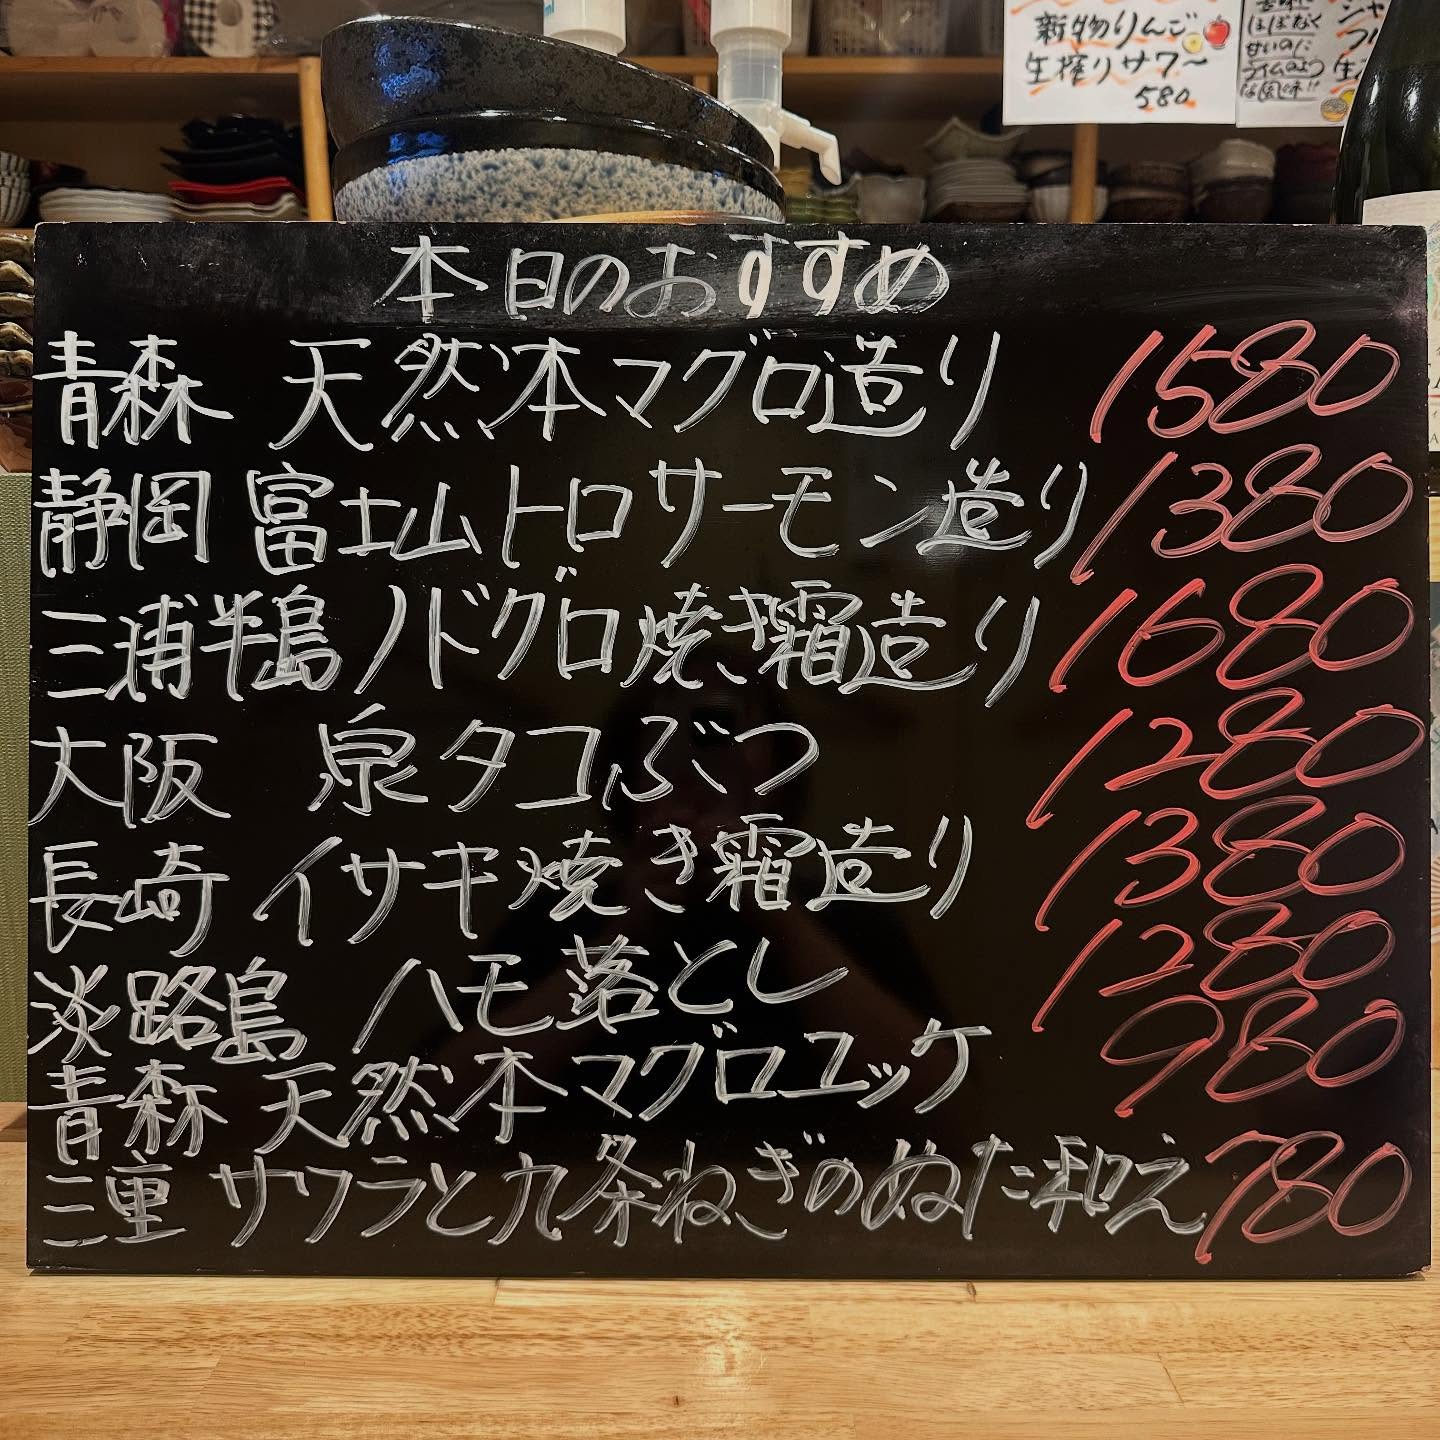 新物りんご
生搾りサワー
580
はばなく
甘いのに
ライムのよう
な風味!!
本日のおすすめ
青森 天然本マグロ造り 1580
静岡 富士山トロサーモン造り 1380
三浦半島 ノドグロ焼き霜造り 1680
大阪 泉タコぶつ 1280
長崎 イサキ焼き霜造り 1380
淡路島 ハモ落とし 1280
青森 天然本マグロユッケ 980
三重 サワラと九条ねぎのぬた和え 780